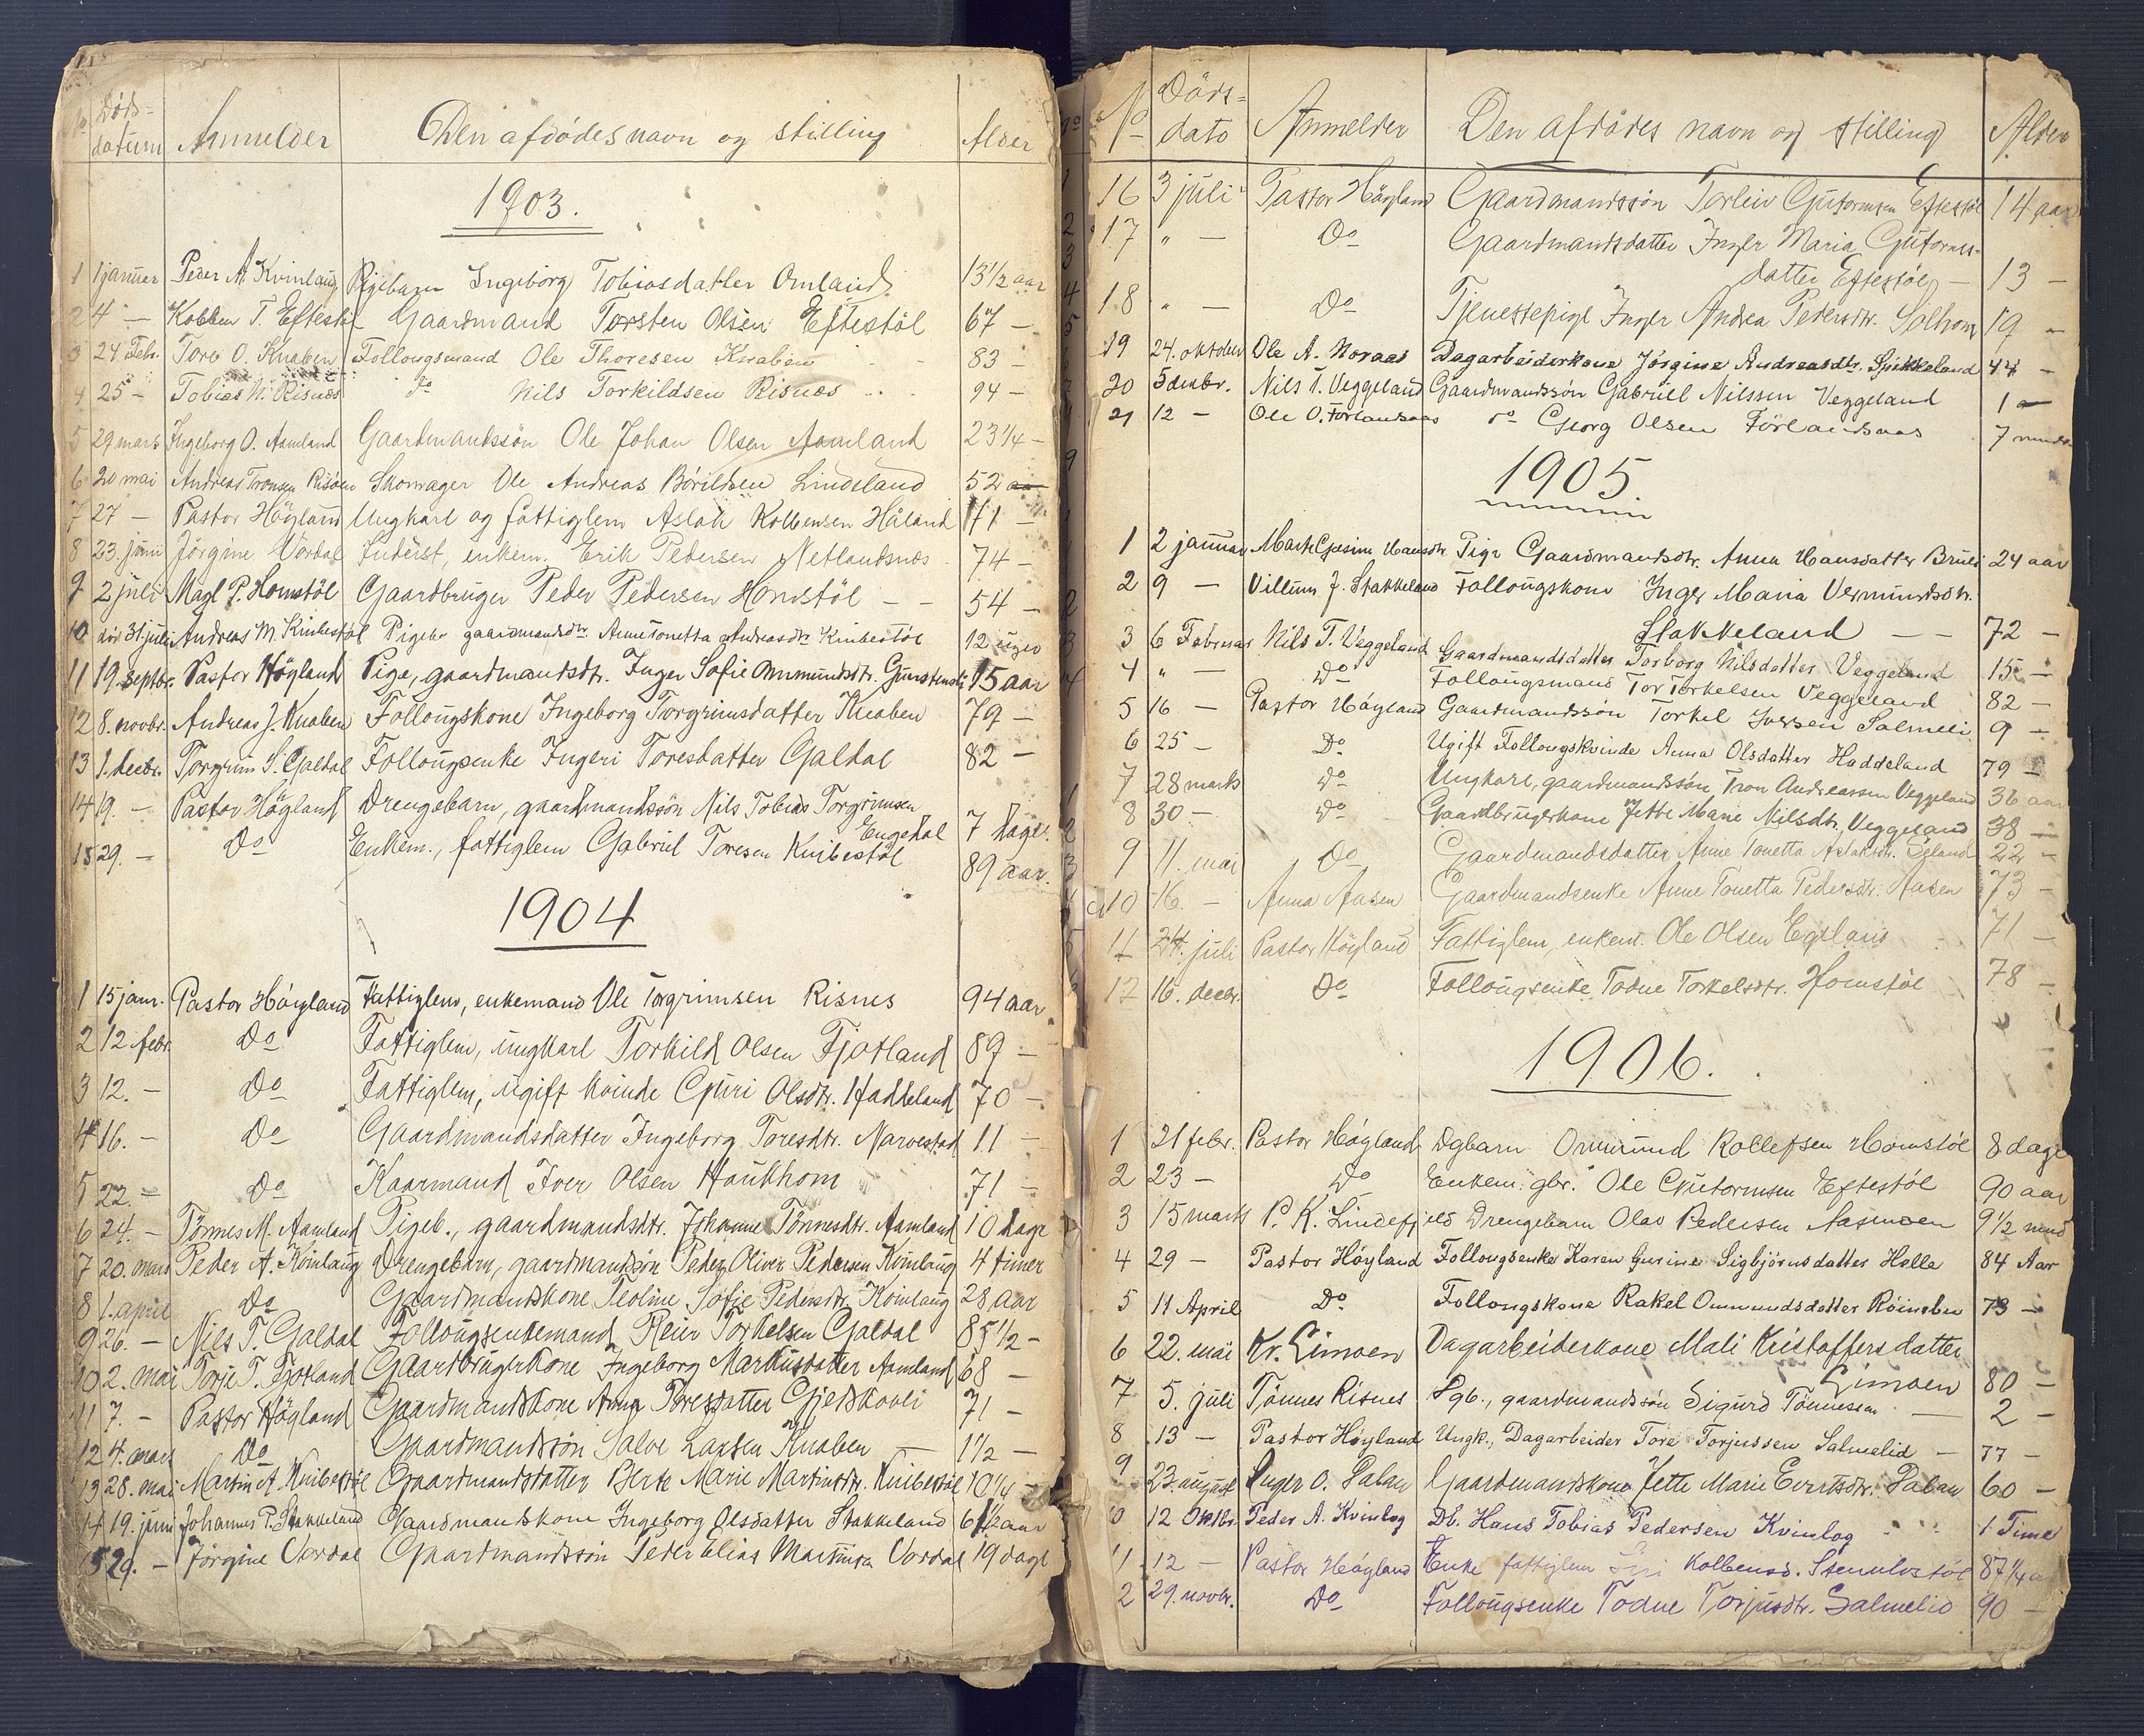 No Døds-
datum Anmelder Den afdødes navn og stilling Alder
1903.
1 1 januar Peder A. Kvinlaug Pigebarn Ingeborg Tobiasdatter Omland 13 1/2 aar
2 4 — Kolben T. Eftestøl Gaardmand Torsten Olsen Eftestöl 67 —
3 24 Febr. Tore O. Knaben Follougsmand Ole Thoresen Knaben 83 —
4 25 — Tobias N. Risnes do Nils Torkildsen Risnes 94 —
5 29 mars Ingeborg O. Aamland Gaardmandssön Ole Johan Olsen Aamland 23 1/4 —
6 20 mai Andreas Tronsen Risöen Skomager Ole Andreas Börildsen Lindeland 52 aa
7 27 — Pastor Höyland Ungkarl og fattiglem Aslak Kolbensen Håland 71 —
8 23. juni Jörgine Vordal Inderst, enkem. Erik Pedersen Netlandsnes 74 —
9 2 juli Magl P. Homstöl Gaardbruger Peder Pedersen Homstöl — — 54 —
10 31. juli Andreas M. Knibestöl Pigebr gaardmandsdtr. Anne Tonetta Andreasdtr Knibestöl 12 uger
11 19. septbr. Pastor Höyland Pige, gaardmandsdtr. Inger Sofie Ommundsdtr. 15 aar
12 8. novbr. Andreas J. Knaben Follougskone Ingeborg Torgrimsdatter Knaben 79 —
13 1. decbr. Torgrim S. Galdal Follougsenke Ingeri Toresdatter Galdal 82 —
14 19. — Pastor Höyland Drengebarn, gaardmandssön Nils Tobias Torgrimsen
Engedal 7 dage.
15 29. — Do Enkem., fattiglem Gabriel Toresen Knibestöl 89 aar.
1904
1 15 janr. Pastor Höyland Fattiglem, enkemand Ole Torgrimsen Risnes 94 aar
2 12 febr. Do Fattiglem, ungkarl Torkild Olsen Fjotland 89 —
3 12. — Do Fattiglem, ugift kvinde Guri Olsdtr. Haddeland 70 —
4 16. — Do Gaardmandsdatter Ingeborg Toresdtr. Narvestad 11 —
5 22. — Do Kaarmand Iver Olsen Haukhom 71 —
6 24. — Tönnes M. Aamland Pigeb., gaardmandsdtr. Johanne Tönnesdtr. Aamland 10 dage
7 20. mars Peder A. Kvinlaug Drengebarn, gaardmandssön Peder Oliver Pedersen Kvinlaug 4 timer
8 1. april Do Gaardmandskone Teoline Sofie Pedersdtr. Kvinlaug 28 aar
9 26. — Nils T. Galdal Follougsenkemand Reier Torkelsen Galdal 85 1/2 —
10 2. mai Torje T. Fjotland Gaardbrugerkone Ingeborg Markusdatter Aamland 68 —
11 7. — Pastor Höyland Gaardmandskone Anna Toresdatter Gjedskovli 71 —
12 4. mars Do Gaardmandssön Salve Larsen Knaben — 1 1/2 —
13 28. mai Martin A. Knibestöl Gaardmandsdatter Berte Marie Martinsdtr. Knibestöl 10 1/4 —
14 19. juni Johannes P. Stakkeland Gaardmandskone Ingeborg Olsdatter Stakkeland 61 1/2 aar
15 29. — Jörgine Vordal Gaardmandssön Peder Elias Vordal 19 dage
No Döds-
dato Anmelder Den afdödes navn og stilling Alder
16 3 juli Pastor Höyland Gaardmandssön Torleiv Gutormsen Eftestöl 14 aar
17 „ — Do Gaardmandsdatter Inger Maria Gutorms-
datter Eftestöl — 13 —
18 „ — Do Tjenestepige Inger Andrea Pedersdtr. Solhom 19 —
19 24. oktober Ole A. Noraas Dagarbeiderkone Jörgine Andreasdtr. Spikkeland 44 —
20 5 decbr. Nils T. Veggeland Gaardmandssön Gabriel Nilssen Veggeland 1 —
21 12 — Ole O. Förlandsaas do Georg Olsen Förlandsaas 7 mndr
1905.
1 2 januar Marte Gesine Hansdtr Pige Gaardmandsdtr. Anna Hansdatter Bruli 24 aar
2 9 — Villum J. Stakkeland Follougskone Inger Maria Vermundsdtr.
Stakkeland — — 72 —
3 6 Februar Nils T. Veggeland Gaardmandsdatter Torborg Nilsdatter Veggeland 15 —
4 „ — Do Follougsmand Tor Torkelsen Veggeland 82 —
5 16 — Pastor Höyland Gaardmandssön Torkel Iversen Salmeli 9 —
6 25 — Do Ugift Follougskvinde Anna Olsdatter Haddeland 79 —
7 28 marts Do Ungkarl, gaardmandssön, Tron Andreassen Veggeland 36 aar
8 30 — Do Gaardbrugerkone Jette Marie Nilsdtr. Veggeland 38 —
9 11. mai Do Gaardmandsdatter Anne Tonetta Aslaksdtr. 22 —
10 16. — Anna Aasen Gaardmandsenke Anne Tonetta Pedersdtr. Aasen 73 —
11 24. juli Pastor Höyland Fattiglem, enkem. Ole Olsen Egeland 71 —
12 16. decbr. Do Follougsenke Todne Torkelsdtr. Homstöl 78 —
1906.
1 21 febr. Pastor Höyland Dgbarn Ommund Rollefsen Homstöl 8 dage
2 23 — Do Enkem. gbr. Ole Gutormsen Eftestöl 90 aar
3 15 marts P. K. Lindefjeld Drengebarn Olav Pedersen Aasmoen 9 1/2 mnd
4 29 — Pastor Höyland Follougsenke Karen Gurine Sigbjörnsdatter Helle 84 Aar
5 11 April Do Follougskone Rakel Ommundsdatter 73 —
6 22. mai Kr. Limoen Dagarbeiderkone Mali Kristoffersdatter
Limoen 80 —
7 5. juli Tönnes Risnes Dgb., gaardmandssön Sigurd Tönnessen — 2 —
8 13 — Pastor Höyland Ungk., Dagarbeider Tore Torjussen Salmelid — 77 —
9 23. august Inger O. Gaardmandskone Jette Marie 60 —
10 12 Oktbr. Peder A. Kvinlog Db. Hans Tobias Pedersen Kvinlog 1 Time
11 12 — Pastor Höyland Enke fattiglem Kolbensd. 87 1/4 a
2 29. novbr. Do Follougsenke Todne Torjusdtr. Salmelid 90 —